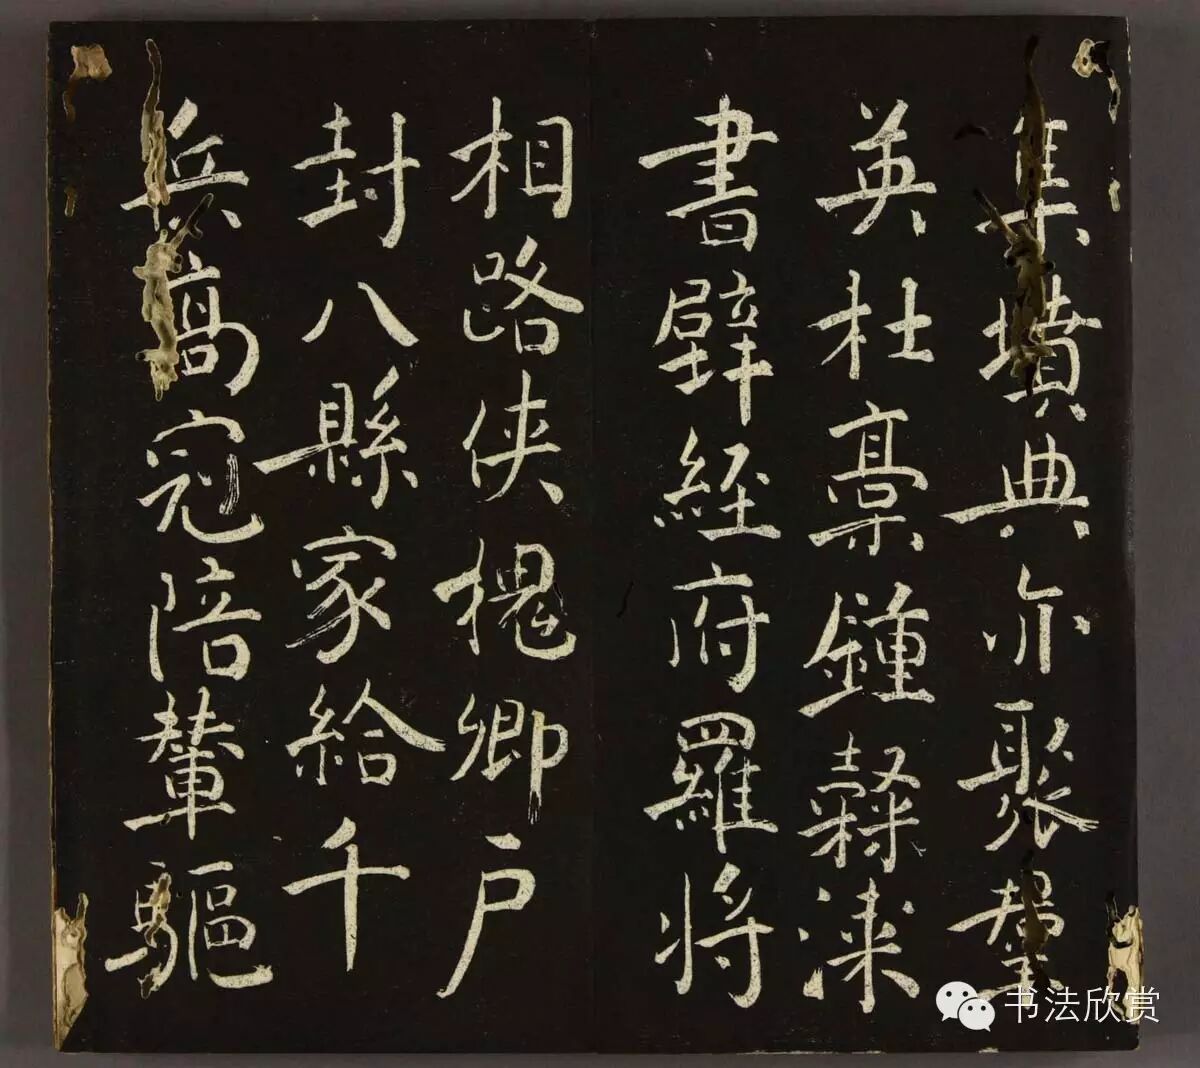 集墳典亦聚羣
英杜稾鍾隸漆
書壁經府羅將
相路俠槐卿户
封八縣家給千
兵高冠陪輦驅
书法欣赏